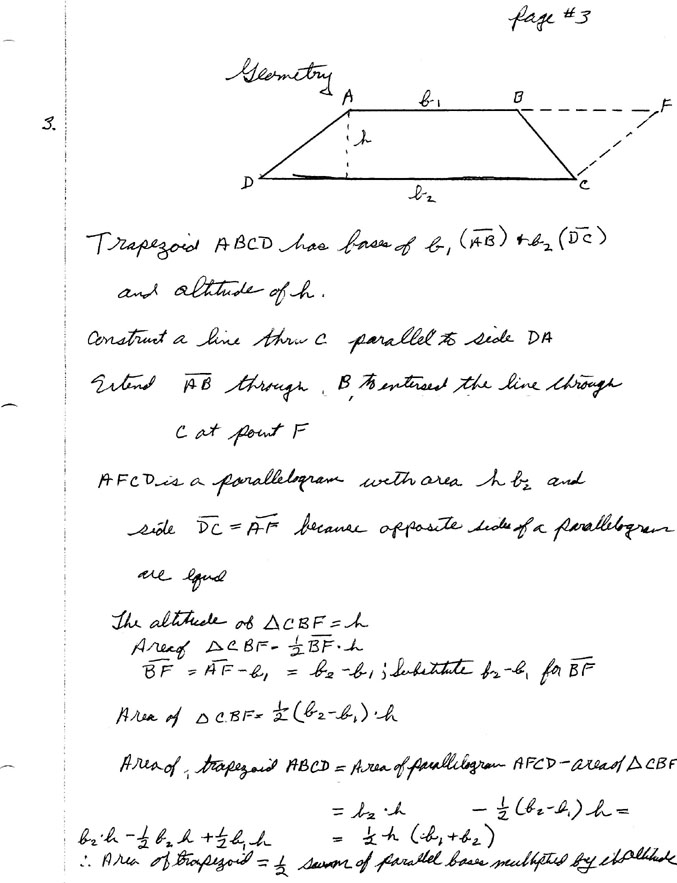 Page #3
Geometry
3.
A b1 B F
h
D b2 C
Trapezoid ABCD has bases of b₁ (A̅B̅) + b₂ (D̅C̅)
and altitude of h.
Construct a line thru C parallel to side DA
Extend A̅B̅ through B, to entersect the line through
C at point F
AFCD is a parallelogram with area h b₂ and
side D̅C̅ = A̅F̅ because opposite sides of a parallelogram
are equal
The altitude of △CBF = h
Area of △CBF = ½ B̅F̅ · h
B̅F̅ = A̅F̅ - b₁ = b₂ - b₁; Substitute b₂ - b₁ for B̅F̅
Area of △CBF = ½ (b₂ - b₁) · h
Area of trapezoid ABCD = Area of parallelogram AFCD - area of △CBF
= b₂ · h - ½ (b₂ - b₁) h =
b₂ · h - ½ b₂ h + ½ b₁ h = ½ h (b₁ + b₂)
∴ Area of trapezoid = ½ sum of parallel bases multiplied by its altitude